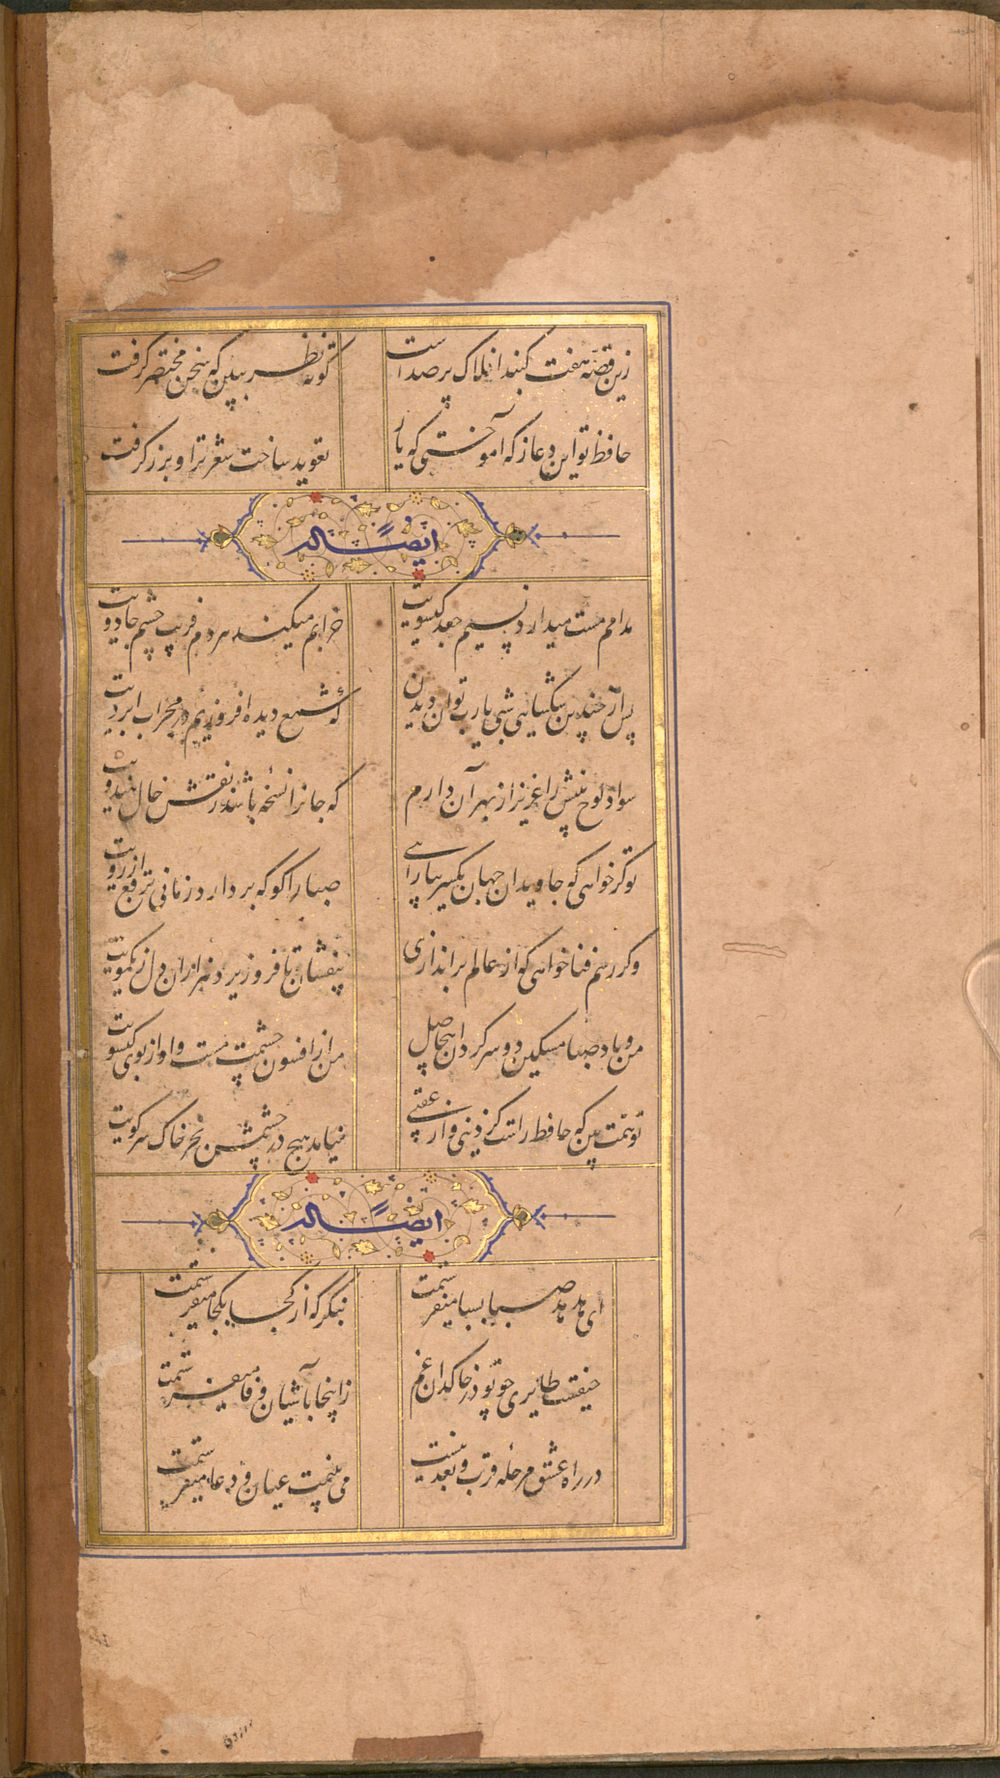 زین قصه هفت گنبد افلاک پر صداست کوته نظر ببین که سخن مختصر گرفت
حافظ تو این دعا ز که آموختی که یار تعوید ساخت شعر ترا و بزر گرفت
ایضا له
مدامم مست میدارد نسیم جعد گیسویت خرابم میکند هر دم فریب چشم جادویت
پس از چندین شکیبایی شبی یارب توان دیدن که شمع دیده افروزیم در محراب ابرویت
سواد لوح بینش را عزیز از بهر آن دارم که جانرا نسخه باشد ز نقش خال هندویت
تو گر خواهی که جاویدان جهان یکسر بیارایی صبا را گو که بردارد زمانی برقع از رویت
وگر رسم فنا خواهی که از عالم براندازی بیفشان تا فرو زیرد هزاران دل ز یکمویت
من و باد صبا مسکین دو سرگردان بیحاصل من از افسون چشمت مست و او از بوی گیسویت
تو همت بین که حافظ راست کز دنیی و از عقبی نیامد هیچ در چشمش بجز خاک سر کویت
ایضا له
ای هدهد صبا بسبا میفرستمت بنگر که از کجا بکجا میفرستمت
حیفست طایری چو تو در خاکدان غم زاینجا بآشیان وفا میفرستمت
در راه عشق مرحله قرب و بعد نیست می بینمت عیان و دعا میفرستمت